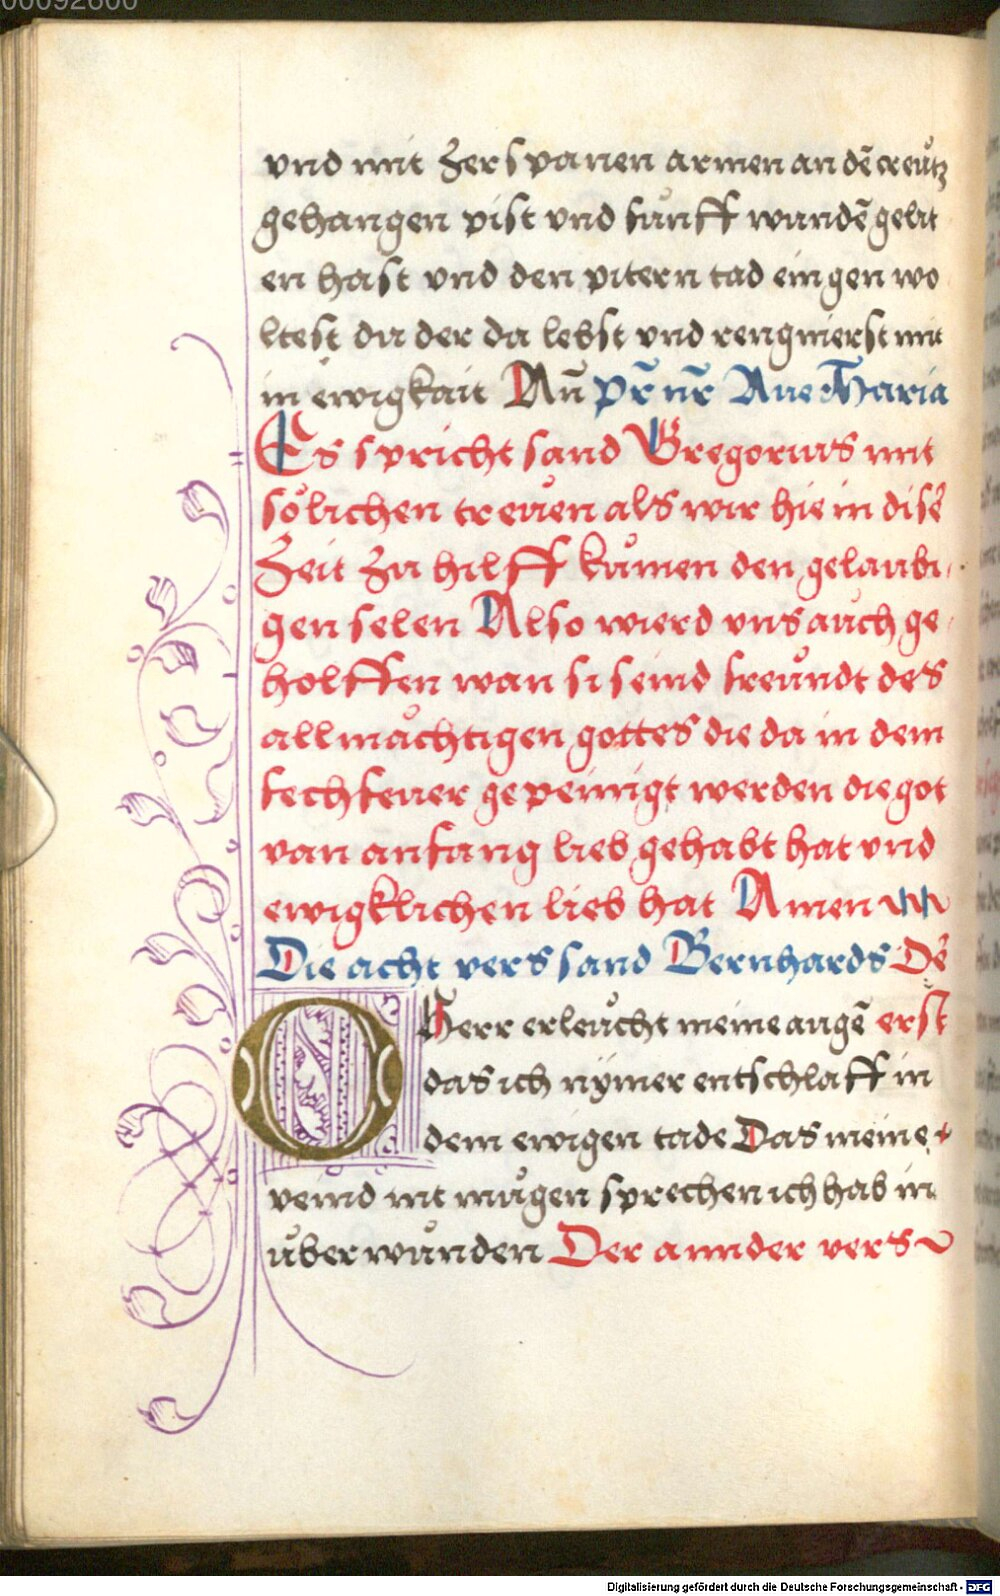 00092600
vnd mit zerspanen armen an dē creůtz
gehangen pist vnd fünff wundē gelit
en hast vnd den pitern tad ein gen wo
ltest du der da lebst vnd rengnierst mit
in ewigkait Au᷄ pr᷄ nr᷄ Aue Maria
Es spricht sand Gregorius mit
sölichen treuen als wir hie in disē
zeit zu hilff kůmen den gelaubi
gen selen Also wierd vns auch ge
holffen wan si seind freůndt des
allmächtigen gottes die da in dem
fechfeuer gepeinigt werden die got
van anfang lieb gehabt hat vnd
ewigklichen lieb hat Amen
Die acht vers sand Bernhards Dē
O Herr erleůcht meine augē erst
das ich nÿmer entschlaff in
dem ewigen tade Das meine
veind nit mügen sprechen ich hab in
überwunden Der annder vers
Digitalisierung gefördert durch die Deutsche Forschungsgemeinschaft - DFG